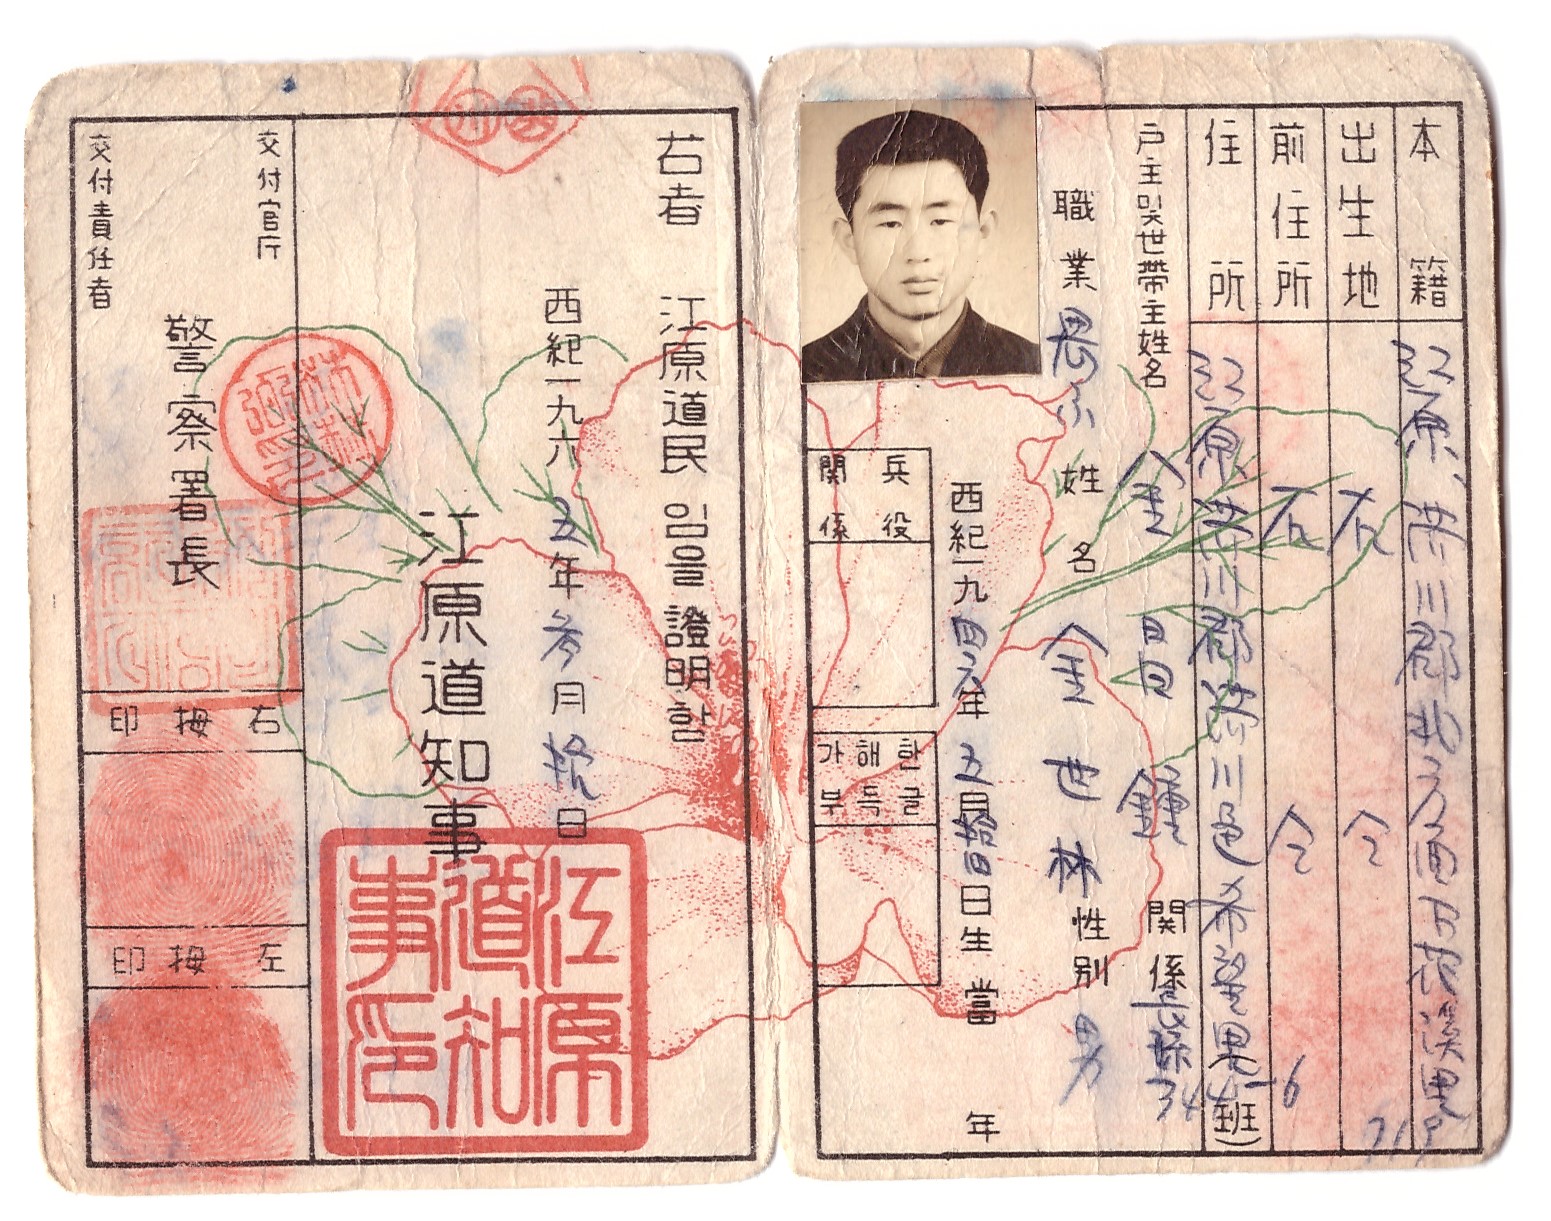 本籍 江原 洪川郡 北方面
出生地 右 仝
前住所 右 仝
住所 江原 洪川郡 洪川邑 希望里 344-6 班)
戶主및世帶主姓名 金 鐘 関係
職業 農業 姓名 金世林 性別 男
西紀一九四六年五月 日生 當 年
兵役
関係
한글
해득
가부
右者 江原道民임을證明함
西紀一九六五年参月 日
江原道知事
江原道知事印
交付官庁
警察署長
交付責任者
右拇印
左拇印